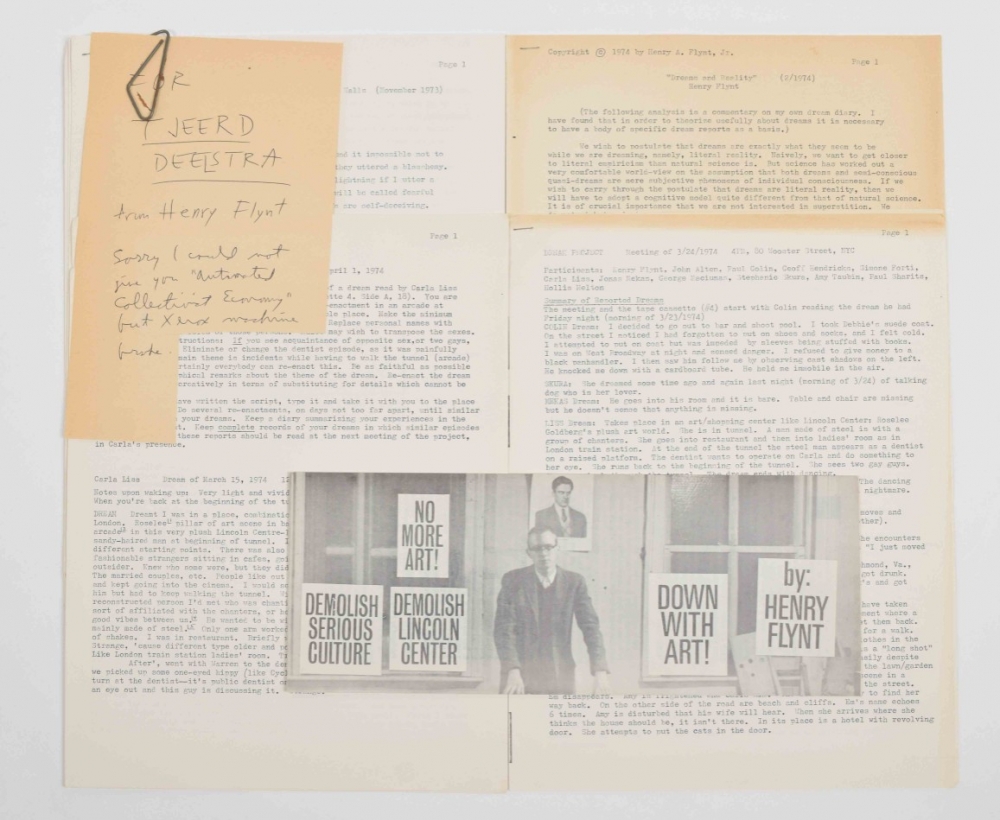 FOR
TJEERD
DEELSTRA
from Henry Flynt
Sorry I could not
give you "Automated
Collectivist Economy"
but Xerox machine
broke.
Page 1
(November 1973)
it impossible not to
they uttered a blasphemy.
lightning if I utter a
will be called fearful
are self-deceiving.
Copyright © 1974 by Henry A. Flynt, Jr.
Page 1
"Dreams and Reality" (2/1974)
Henry Flynt
(The following analysis is a commentary on my own dream diary. I
have found that in order to theorize usefully about dreams it is necessary
to have a body of specific dream reports as a basis.)
We wish to postulate that dreams are exactly what they seem to be
while we are dreaming, namely, literal reality. Naively, we want to get closer
to literal empiricism than natural science is. But science has worked out a
very comfortable world-view on the assumption that both dreams and semi-conscious
quasi-dreams are mere subjective phenomena of individual consciousness. If we
wish to carry through the postulate that dreams are literal reality, then we
will have to adopt a cognitive model quite different from that of natural science.
It is of crucial importance that we are not interested in superstition. We
Page 1
April 1, 1974
of a dream read by Carla Liss
Side A, 18). You are
enactment in an arcade at
place. Make the minimum
Replace personal names with
may wish to transpose the sexes.
If you see acquaintance of opposite sex, or two gays,
Eliminate or change the dentist episode, as it was painfully
main theme is incidents while having to walk the tunnel (arcade)
certainly everybody can re-enact this. Be as faithful as possible
remarks about the theme of the dream. Re-enact the dream
in terms of substituting for details which cannot be
have written the script, type it and take it with you to the place
Do several re-enactments, on days not too far apart, until similar
your dreams. Keep a diary summarizing your experiences in the
Keep complete records of your dreams in which similar episodes
these reports should be read at the next meeting of the project,
in Carla's presence.
Carla Liss Dream of March 15, 1974
Notes upon waking up: Very light and vivid
When you're back at the beginning of the
DREAM Dreamt I was in a place,
London. Roselee pillar of art scene in
arcade is this very plush Lincoln Centre-
sandy-haired man at beginning of tunnel. I
different starting points. There was also
fashionable strangers sitting in cafes,
outsider. Knew who some were, but they
The married couples, etc. People like
and kept going into the cinema. I would
him but had to keep walking the tunnel.
reconstructed person I'd met who was
sort of affiliated with the chanters, or
good vibes between us. He wanted to be
mainly made of steel. Only one arm worked
of chakes. I was in restaurant. Briefly
Strange, 'cause different type older and
Like London train station ladies' room.
After, went with Warren to the
we picked up some one-eyed hippy (like
turn at the dentist—it's public dentist
an eye out and this guy is discussing it.
Page 1
DREAM PROJECT Meeting of 3/24/1974 80 Wooster Street, NYC
Participants: Henry Flynt, John Alten, Paul Colin, Geoff Hendricks, Simone Forti,
Carla Liss, Jonas Mekas, George Maciunas, Stephanie Skura, Amy Taubin, Paul Sharits,
Hollis Melton
Summary of Reported Dreams
The meeting and the tape cassette start with Colin reading the dream he had
Friday night (morning of 3/23/1974)
COLIN Dream: I decided to go out to bar and shoot pool. I took Debbie's suede coat.
On the street I noticed I had forgotten to put on shoes and socks, and I felt cold.
I attempted to put on coat but was impeded by sleeves being stuffed with books.
I was on West Broadway at night and sensed danger. I refused to give money to a
black panhandler. I then saw him follow me by observing cast shadows on the left.
He knocked me down with a cardboard tube. He held me immobile in the air.
SKURA: She dreamed some time ago and again last night (morning of 3/24) of talking
dog who is her lover.
MEKAS Dream: He goes into his room and it is bare. Table and chair are missing
but he doesn't sense that anything is missing.
LISS Dream: Takes place in an art/shopping center like Lincoln Center; Roselee
Goldberg's plush art world. She is in tunnel. A man made of steel is with a
group of chanters. She goes into restaurant and then into ladies' room as in
London train station. At the end of the tunnel the steel man appears as a dentist
on a raised platform. The dentist wants to operate on Carla and do something to
her eye. She runs back to the beginning of the tunnel. She sees two gay guys.
The dancing
nightmare.
he encounters
"I just saved
Richmond, Va.,
got drunk.
and get
have taken
where a
them back.
for a walk.
clothes in the
a "long shot"
despite
the lawn/garden
scene in a
the street.
to find her
way back. On the other side of the road are beach and cliffs. Her name echoes
6 times. Amy is disturbed that his wife will hear. When she arrives where she
thinks the house should be, it isn't there. In its place is a hotel with revolving
door. She attempts to put the cats in the door.
NO
MORE
ART!
DEMOLISH
SERIOUS
CULTURE
DEMOLISH
LINCOLN
CENTER
DOWN
WITH
ART!
by:
HENRY
FLYNT